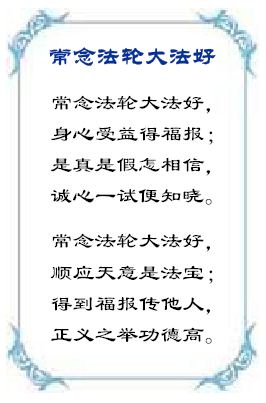 常念法轮大法好
常念法轮大法好，
身心受益得福报；
是真是假怎相信，
诚心一试便知晓。
常念法轮大法好，
顺应天意是法宝；
得到福报传他人，
正义之举功德高。